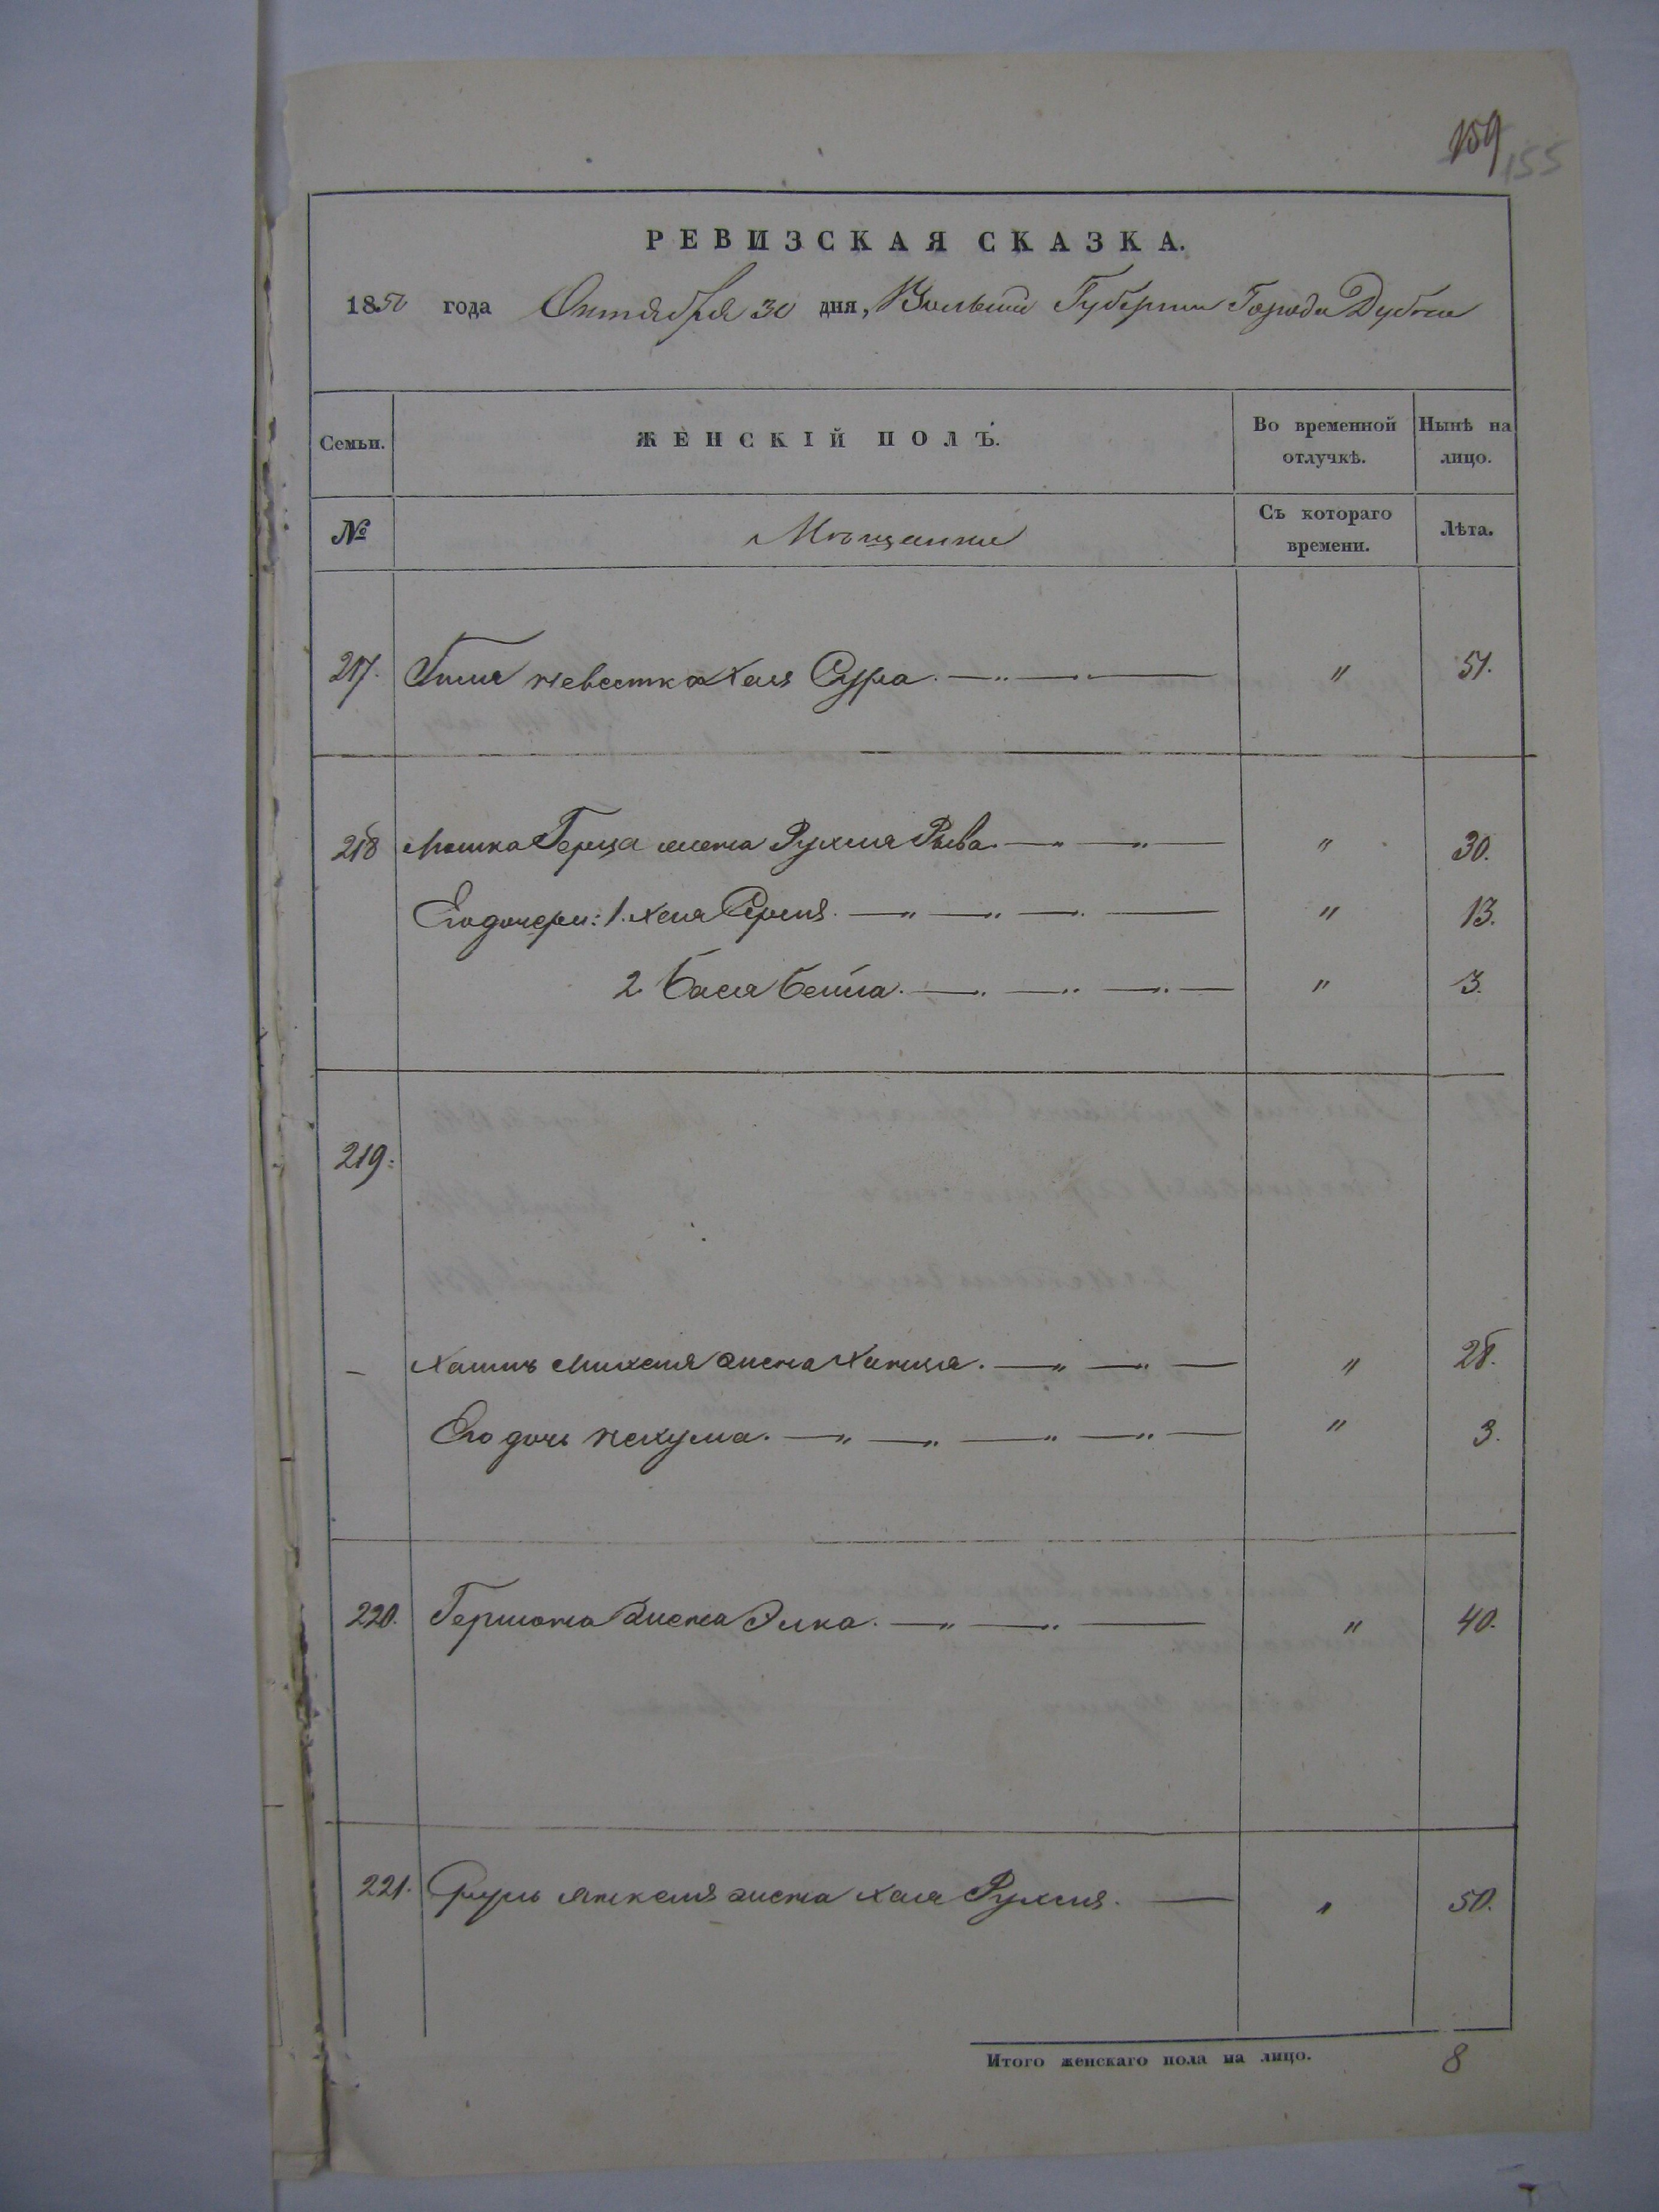 159
155
РЕВИЗСКАЯ СКАЗКА.
1850 года Октября 30 дня, Волын: Губернии Города Дубно
Семьи. ЖЕНСКІЙ ПОЛЪ. Во временной отлучкѣ. Нынѣ на лицо.
№ Мѣщанки Съ котораго времени. Лѣта.
217. невестка Хая Сура. " 51.
218 Мошка Герца жена Рухля Рыва. " 30.
Его дочери: 1. Хая " 13.
2. Бася Бейла. " 3.
219.
Жена " 28.
Его дочь Нехума. " 3.
220. Гершона Жена Элка. " 40.
221. Сруль Янкеля жена Хая Рухля. " 50.
Итого женскаго пола на лицо. 8